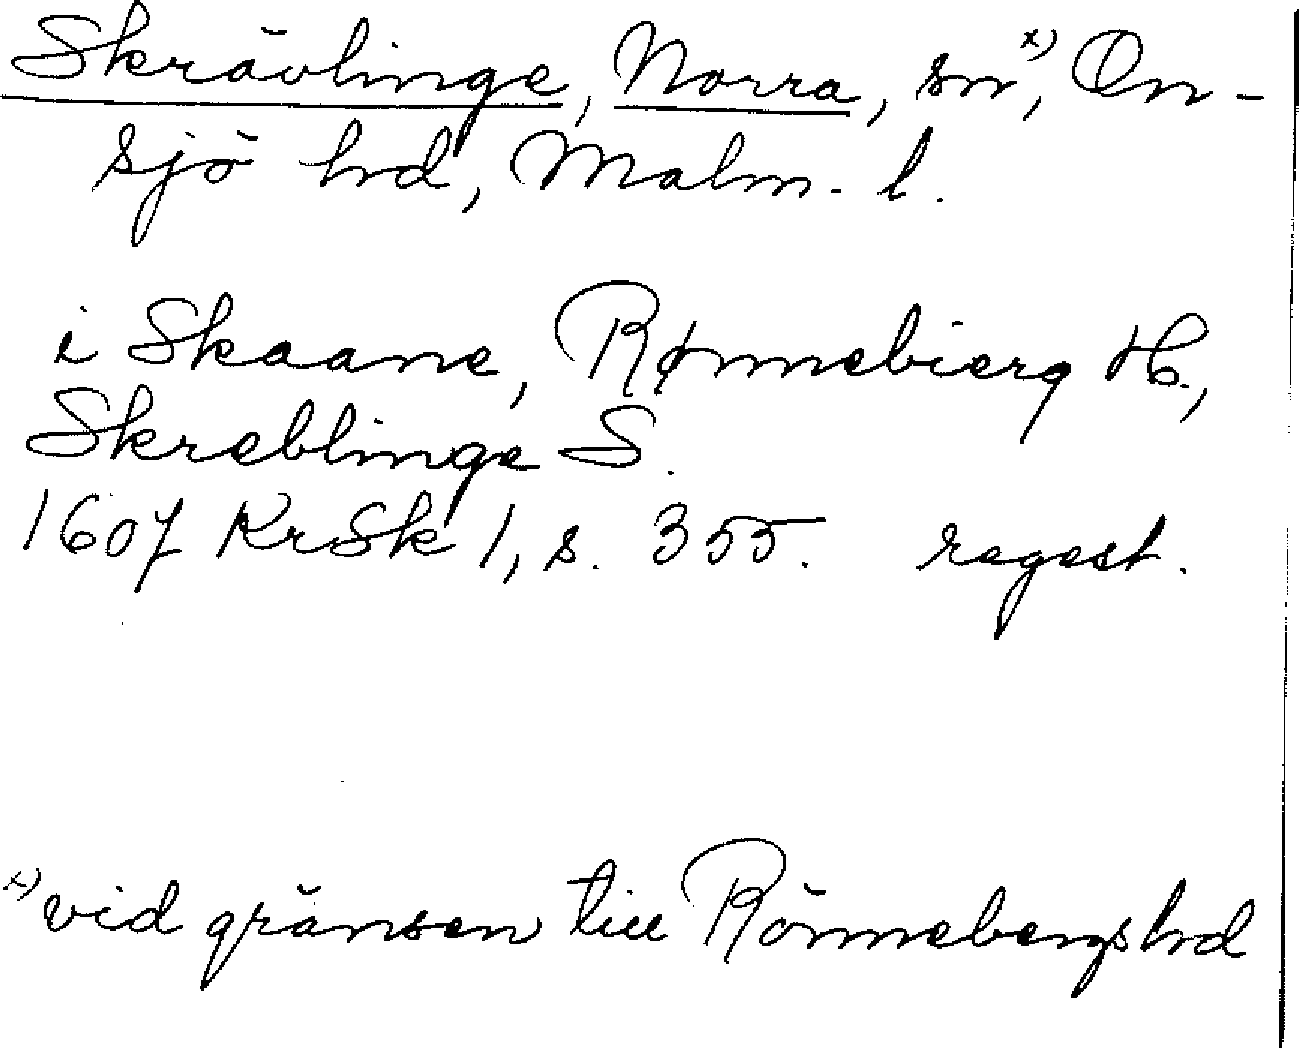 Skrävlinge, Norra, sn x), On-
sjö hd, Malm. l.
i Skaane, Rønnebierg H.,
Skreblinge S.
1607 KrSk 1, s. 355. regest.
x) vid gränsen till Rönnebergs hd